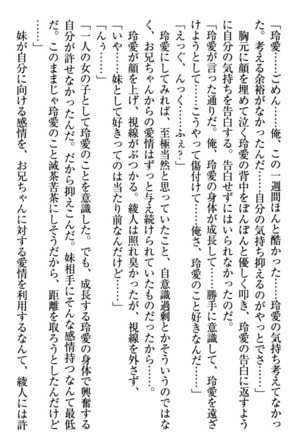 「玲愛……ごめん……俺、この一週間ほんと酷かった……玲愛の気持ち考えてなかっ
た。考える余裕がなかったんだ……自分の気持ち抑えるのがやっとでさ」
胸元に顔を埋めて泣く玲愛の背中をぽんぽんと優しく叩き、玲愛の告白に返すよう
に自分の気持ちを告白する。告白せずにはいられなかったのだ。
「玲愛が言った通りだ。俺、玲愛の身体が成長して……勝手に意識して、玲愛を遠ざ
けようとして……こうやって傷付けて……俺さ、玲愛のこと好きなんだ……」
「えっぐ、んっく……ふぇ？」
玲愛にしてみれば、至極当然と思っていたこと、自意識過剰とかそういうのではな
く、お兄ちゃんからの愛情はずっと与え続けられていたものだったから……。
玲愛が顔を上げ、視線がぶつかる。綾人は照れ臭かったが、視線を外さず、
「いや……妹として好きってのは当たり前なんだけど……」
「んぅ……」
「一人の女の子として玲愛のことを意識した。でも、成長する玲愛の身体で興奮する
自分が許せなかったんだ。だから抑えこんだ。妹相手にそんな感情持つなんて最低
だ。このままじゃ玲愛のこと滅茶苦茶にしそうだから、距離を取ろうとしたんだけど
……」
妹が自分に向ける感情を、お兄ちゃんに対する愛情を利用するなんて、綾人には許